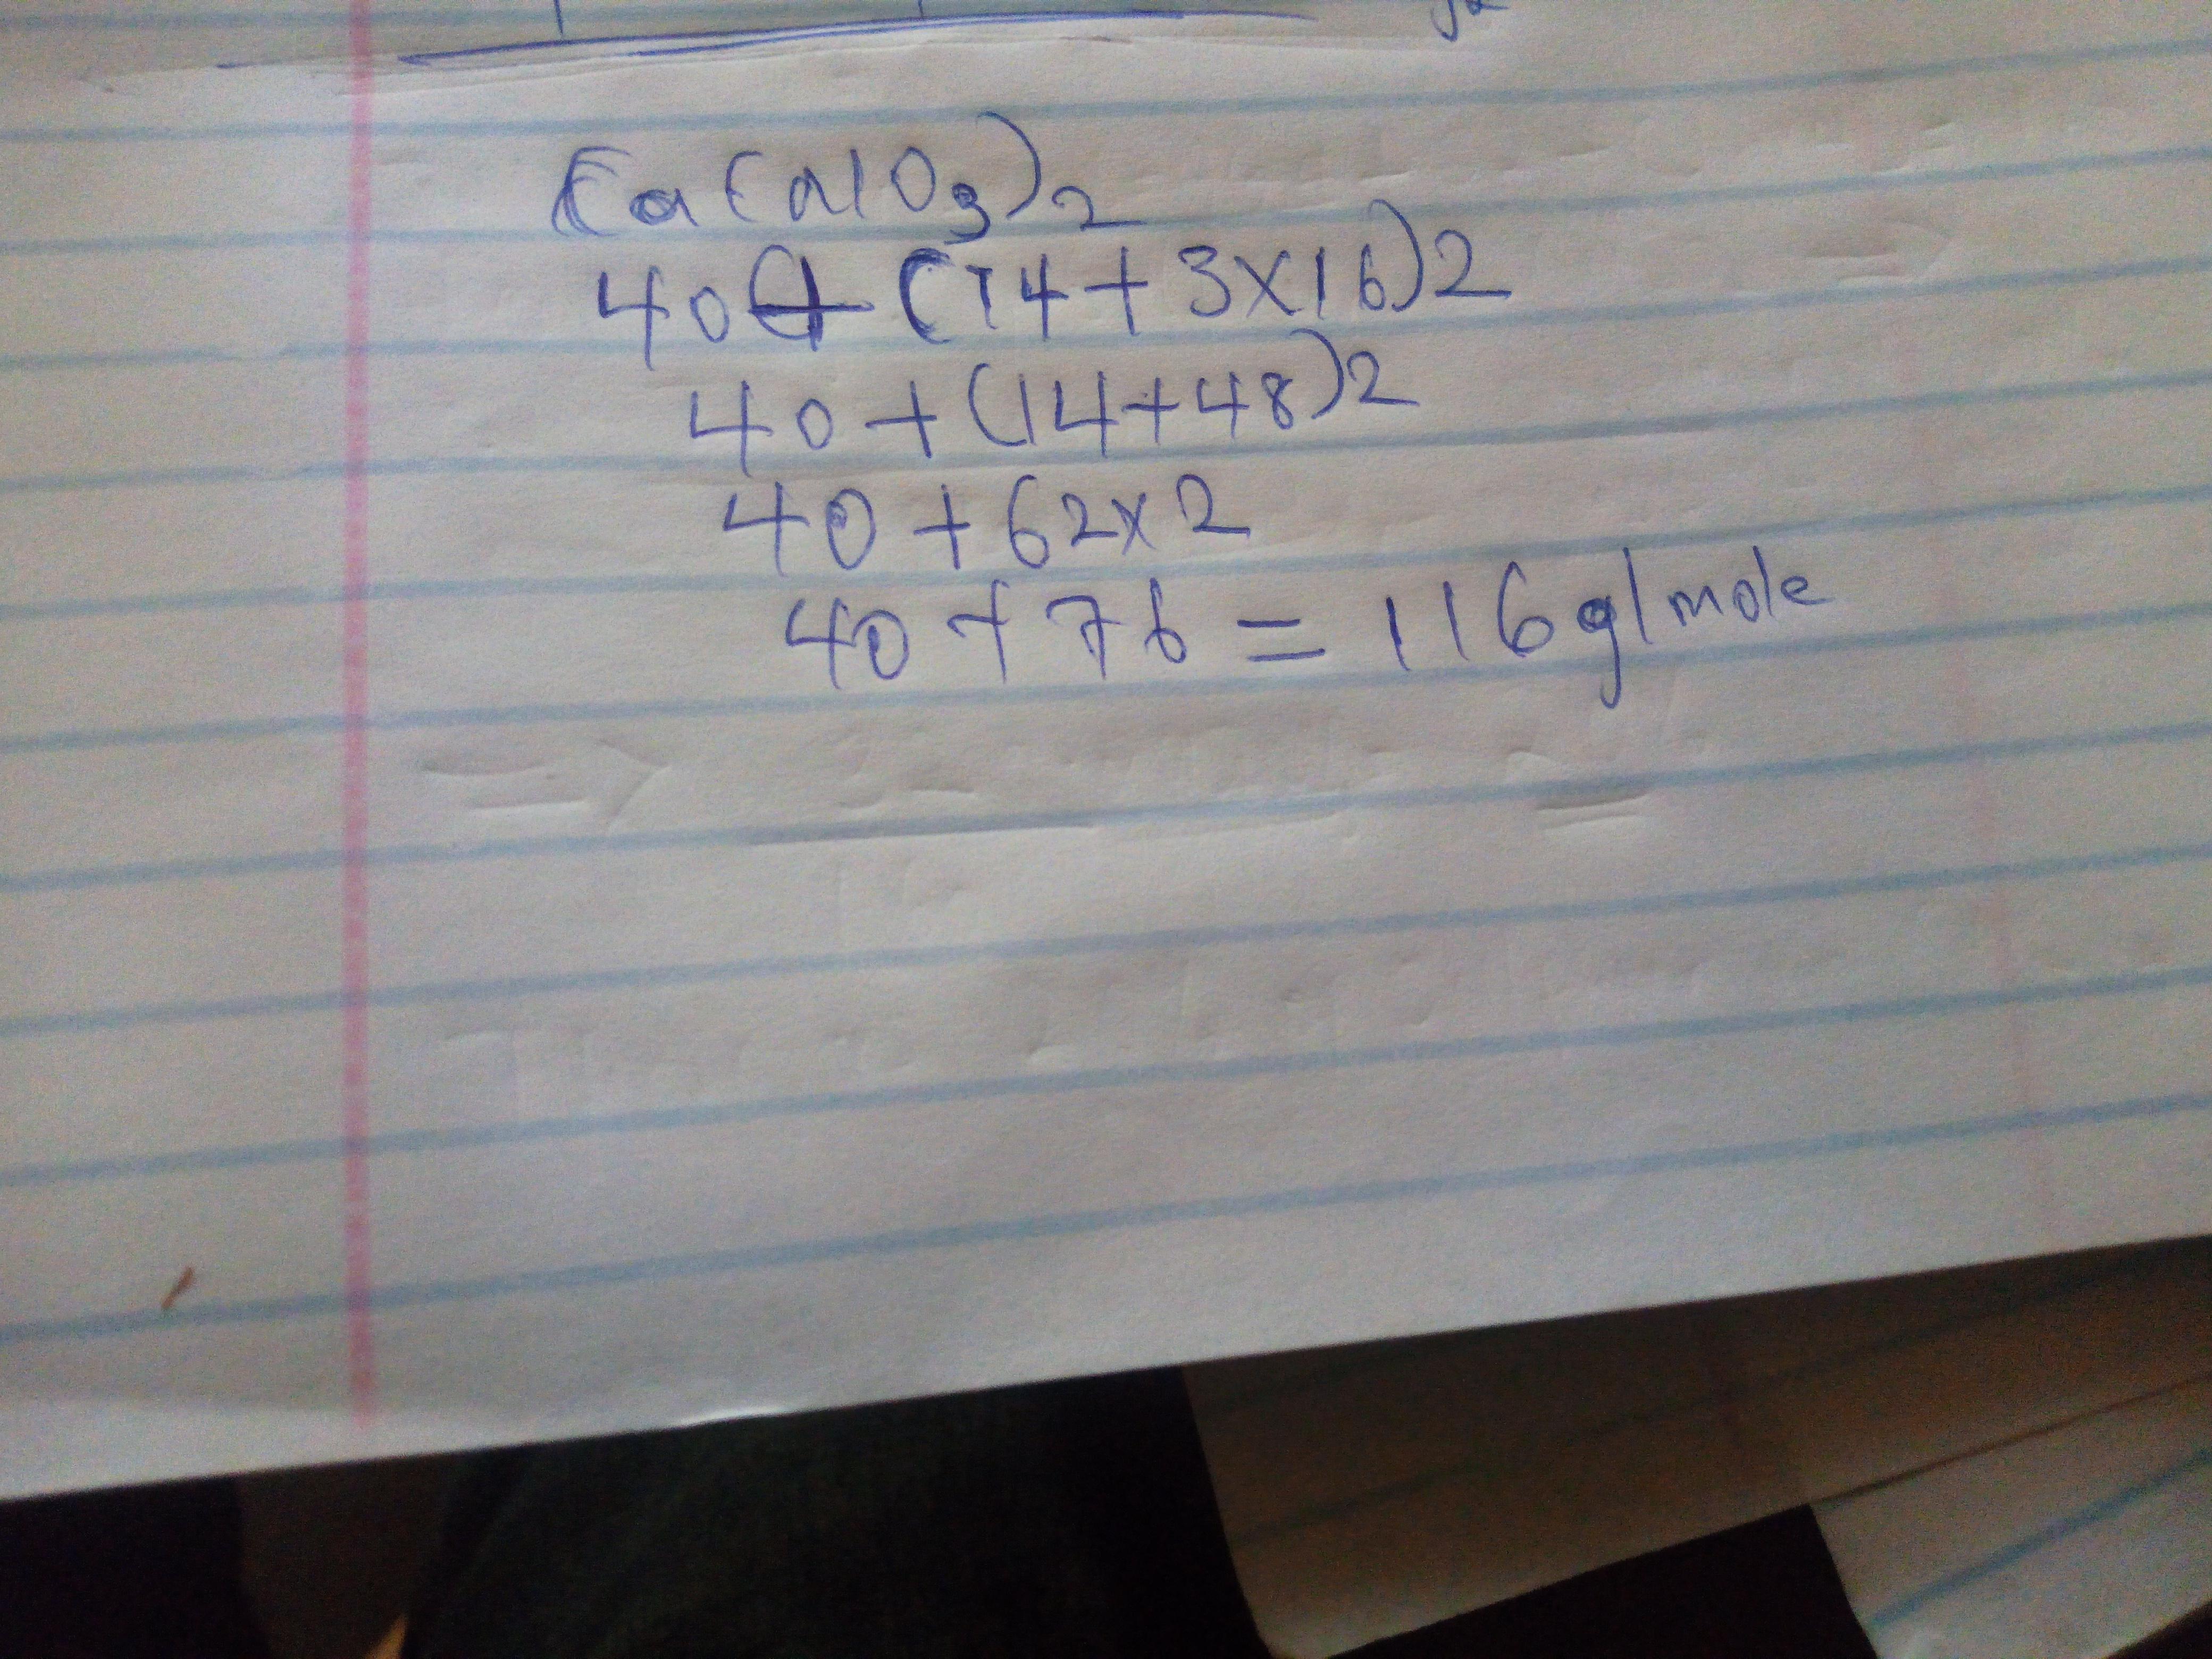 Ca(NO3)2
40 + (14 + 3x16)2
40 + (14+48)2
40 + 62x2
40 + 76 = 116 g/mole